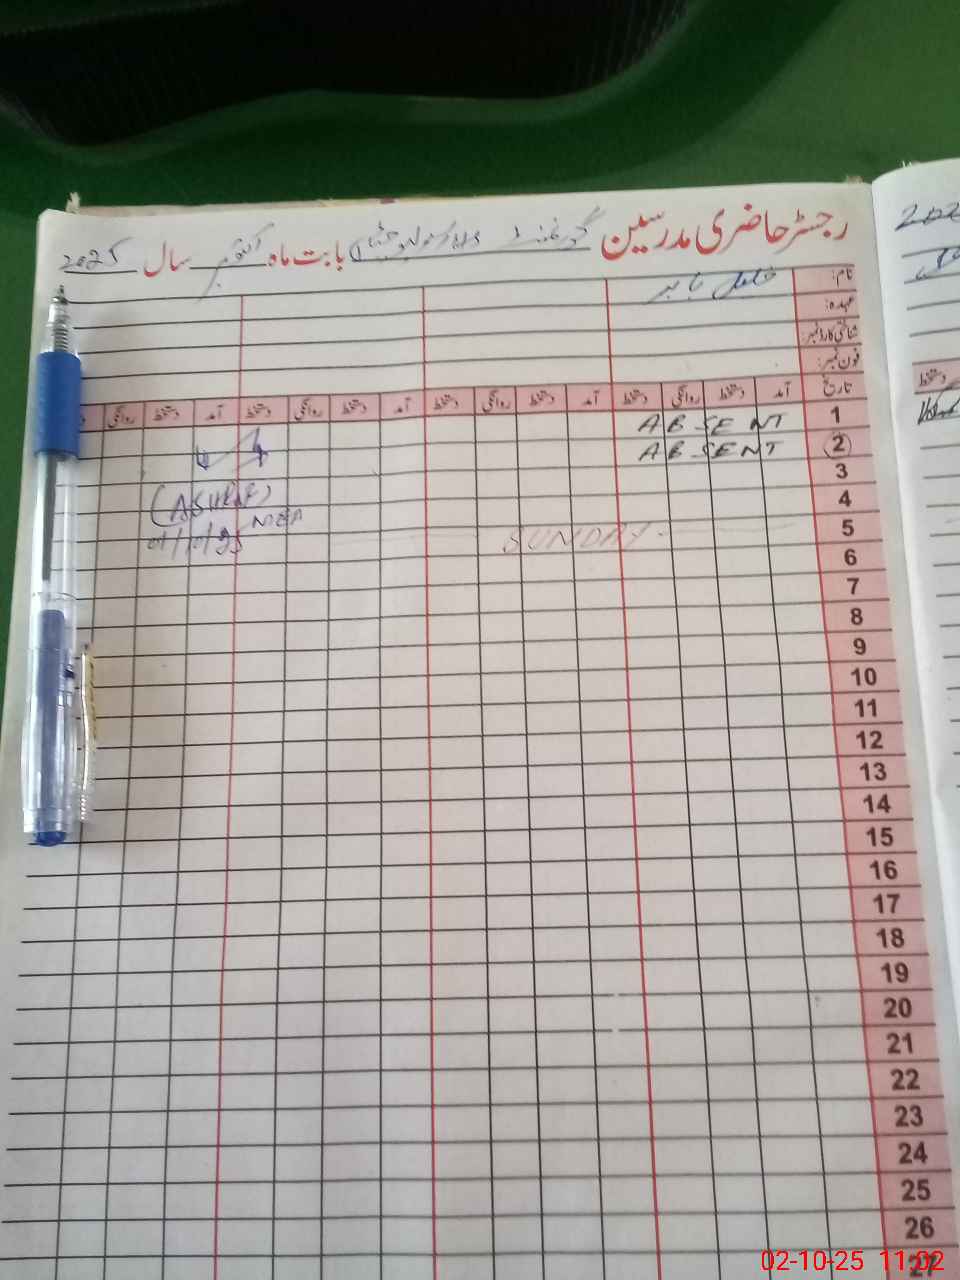 رجسٹر حاضری مدرسین گورنمنٹ بابت ماہ اکتوبر سال 2025
نام:
عہدہ:
شناختی کارڈ نمبر:
فون نمبر:
تاریخ آمد دستخط روانگی دستخط آمد دستخط روانگی دستخط آمد دستخط روانگی دستخط آمد دستخط روانگی
1 ABSENT
2 ABSENT
3
4 (ASHRAF)
5 SUNDAY
01/10/25 MEA
6
7
8
9
10
11
12
13
14
15
16
17
18
19
20
21
22
23
24
25
26
27
202
دستخط
02-10-25 11:02